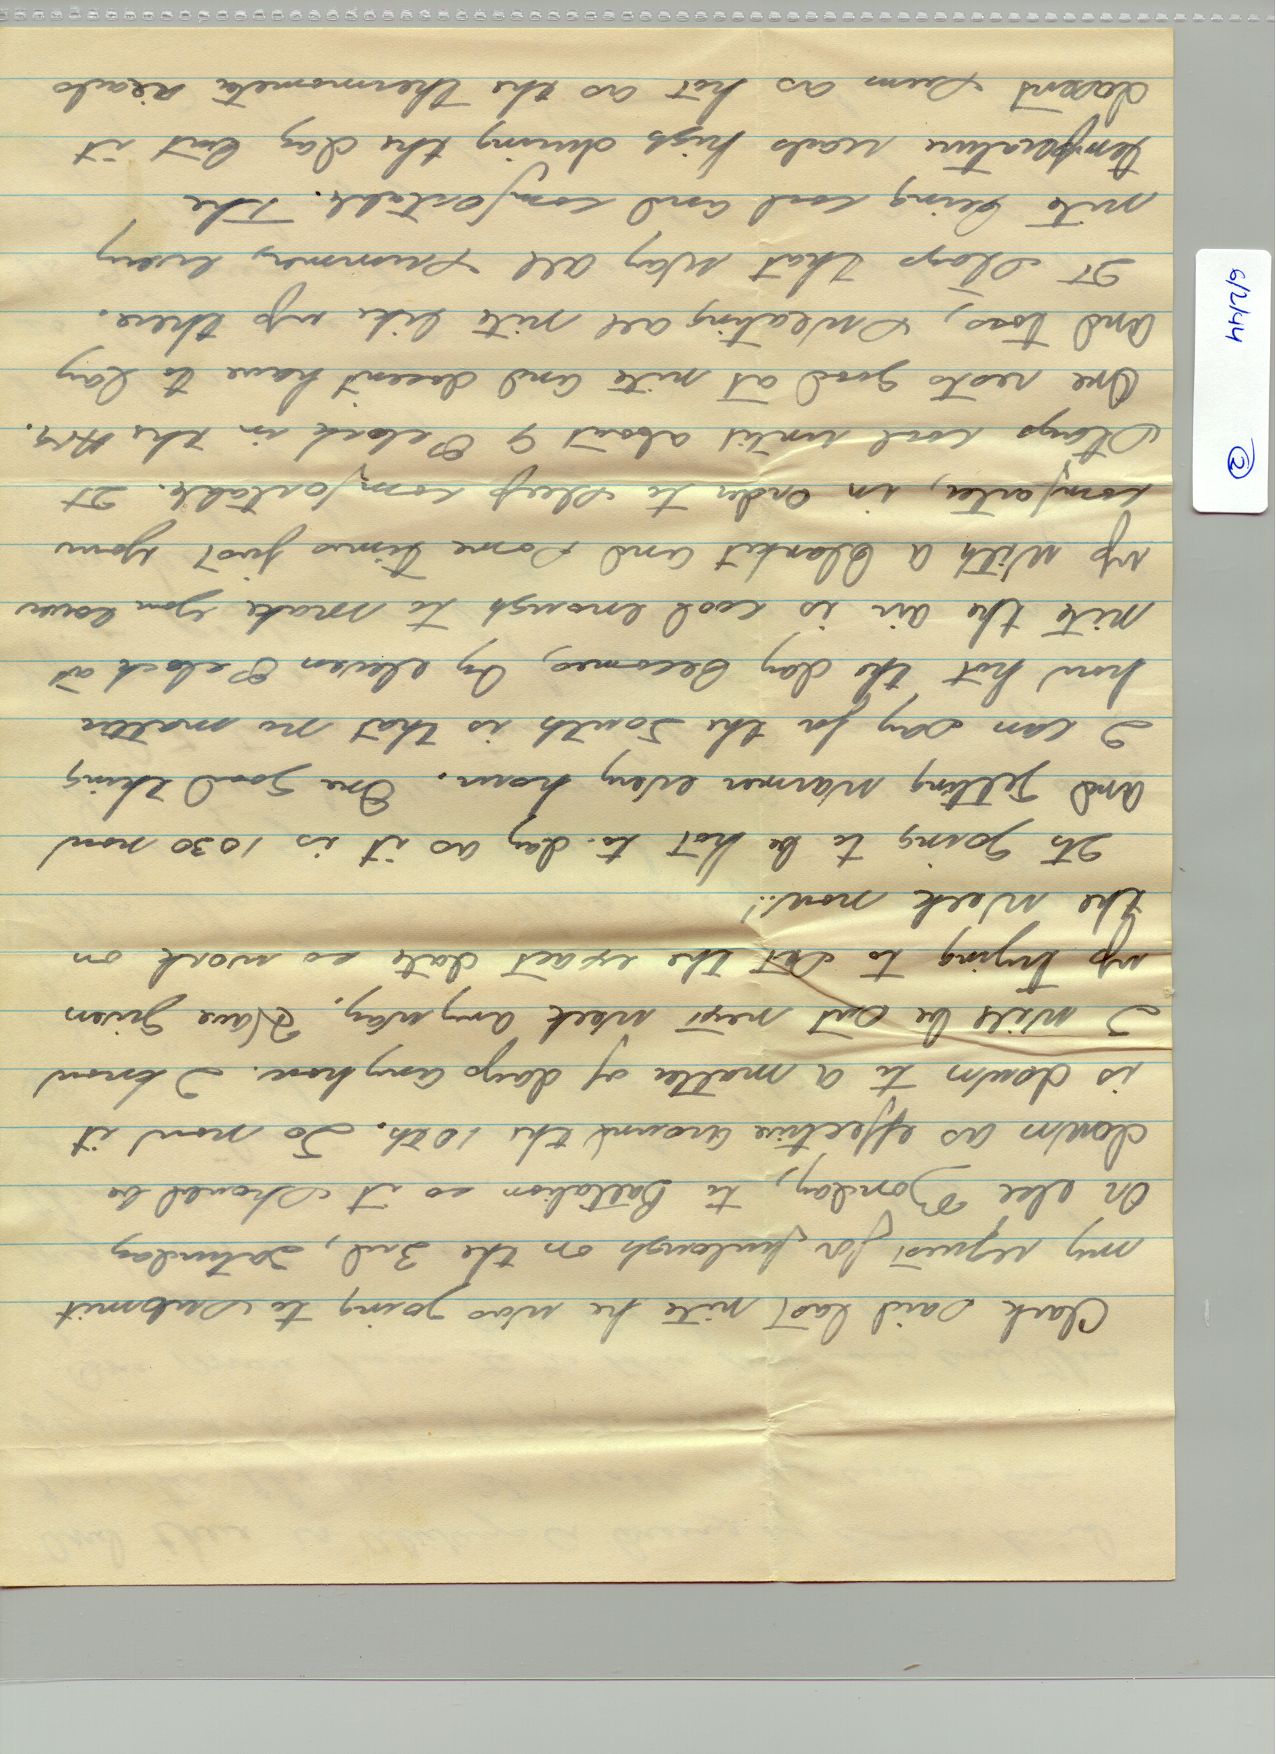 Clark said last nite he was going to submit
my request for furlough on the 3rd, Saturday
or else Monday, to Battalion so it should be
down as effective around the 10th. So now it
is down to a matter of days anyhow. I know
I will be out next week anyway. Have given
up trying to set the exact date so work on
the week now!!
Its going to be hot to-day as it is 1030 now
and getting warmer every hour. One good thing
I can say for the South is that no matter
how hot the day becomes, by eleven O'clock at
nite the air is cool enough to make you cover
up with a blanket and some times just your
comforter, in order to sleep comfortable. It
stays cool until about 9 O'clock in the
One rests good at nite and doesent have to lay
and toss, sweating all nite like up there.
It stays that way all summer, every
nite being cool and comfortable. The
temperature reads high during the day but it
dosent seem as hot as the thermometer reads
6/2/44
2